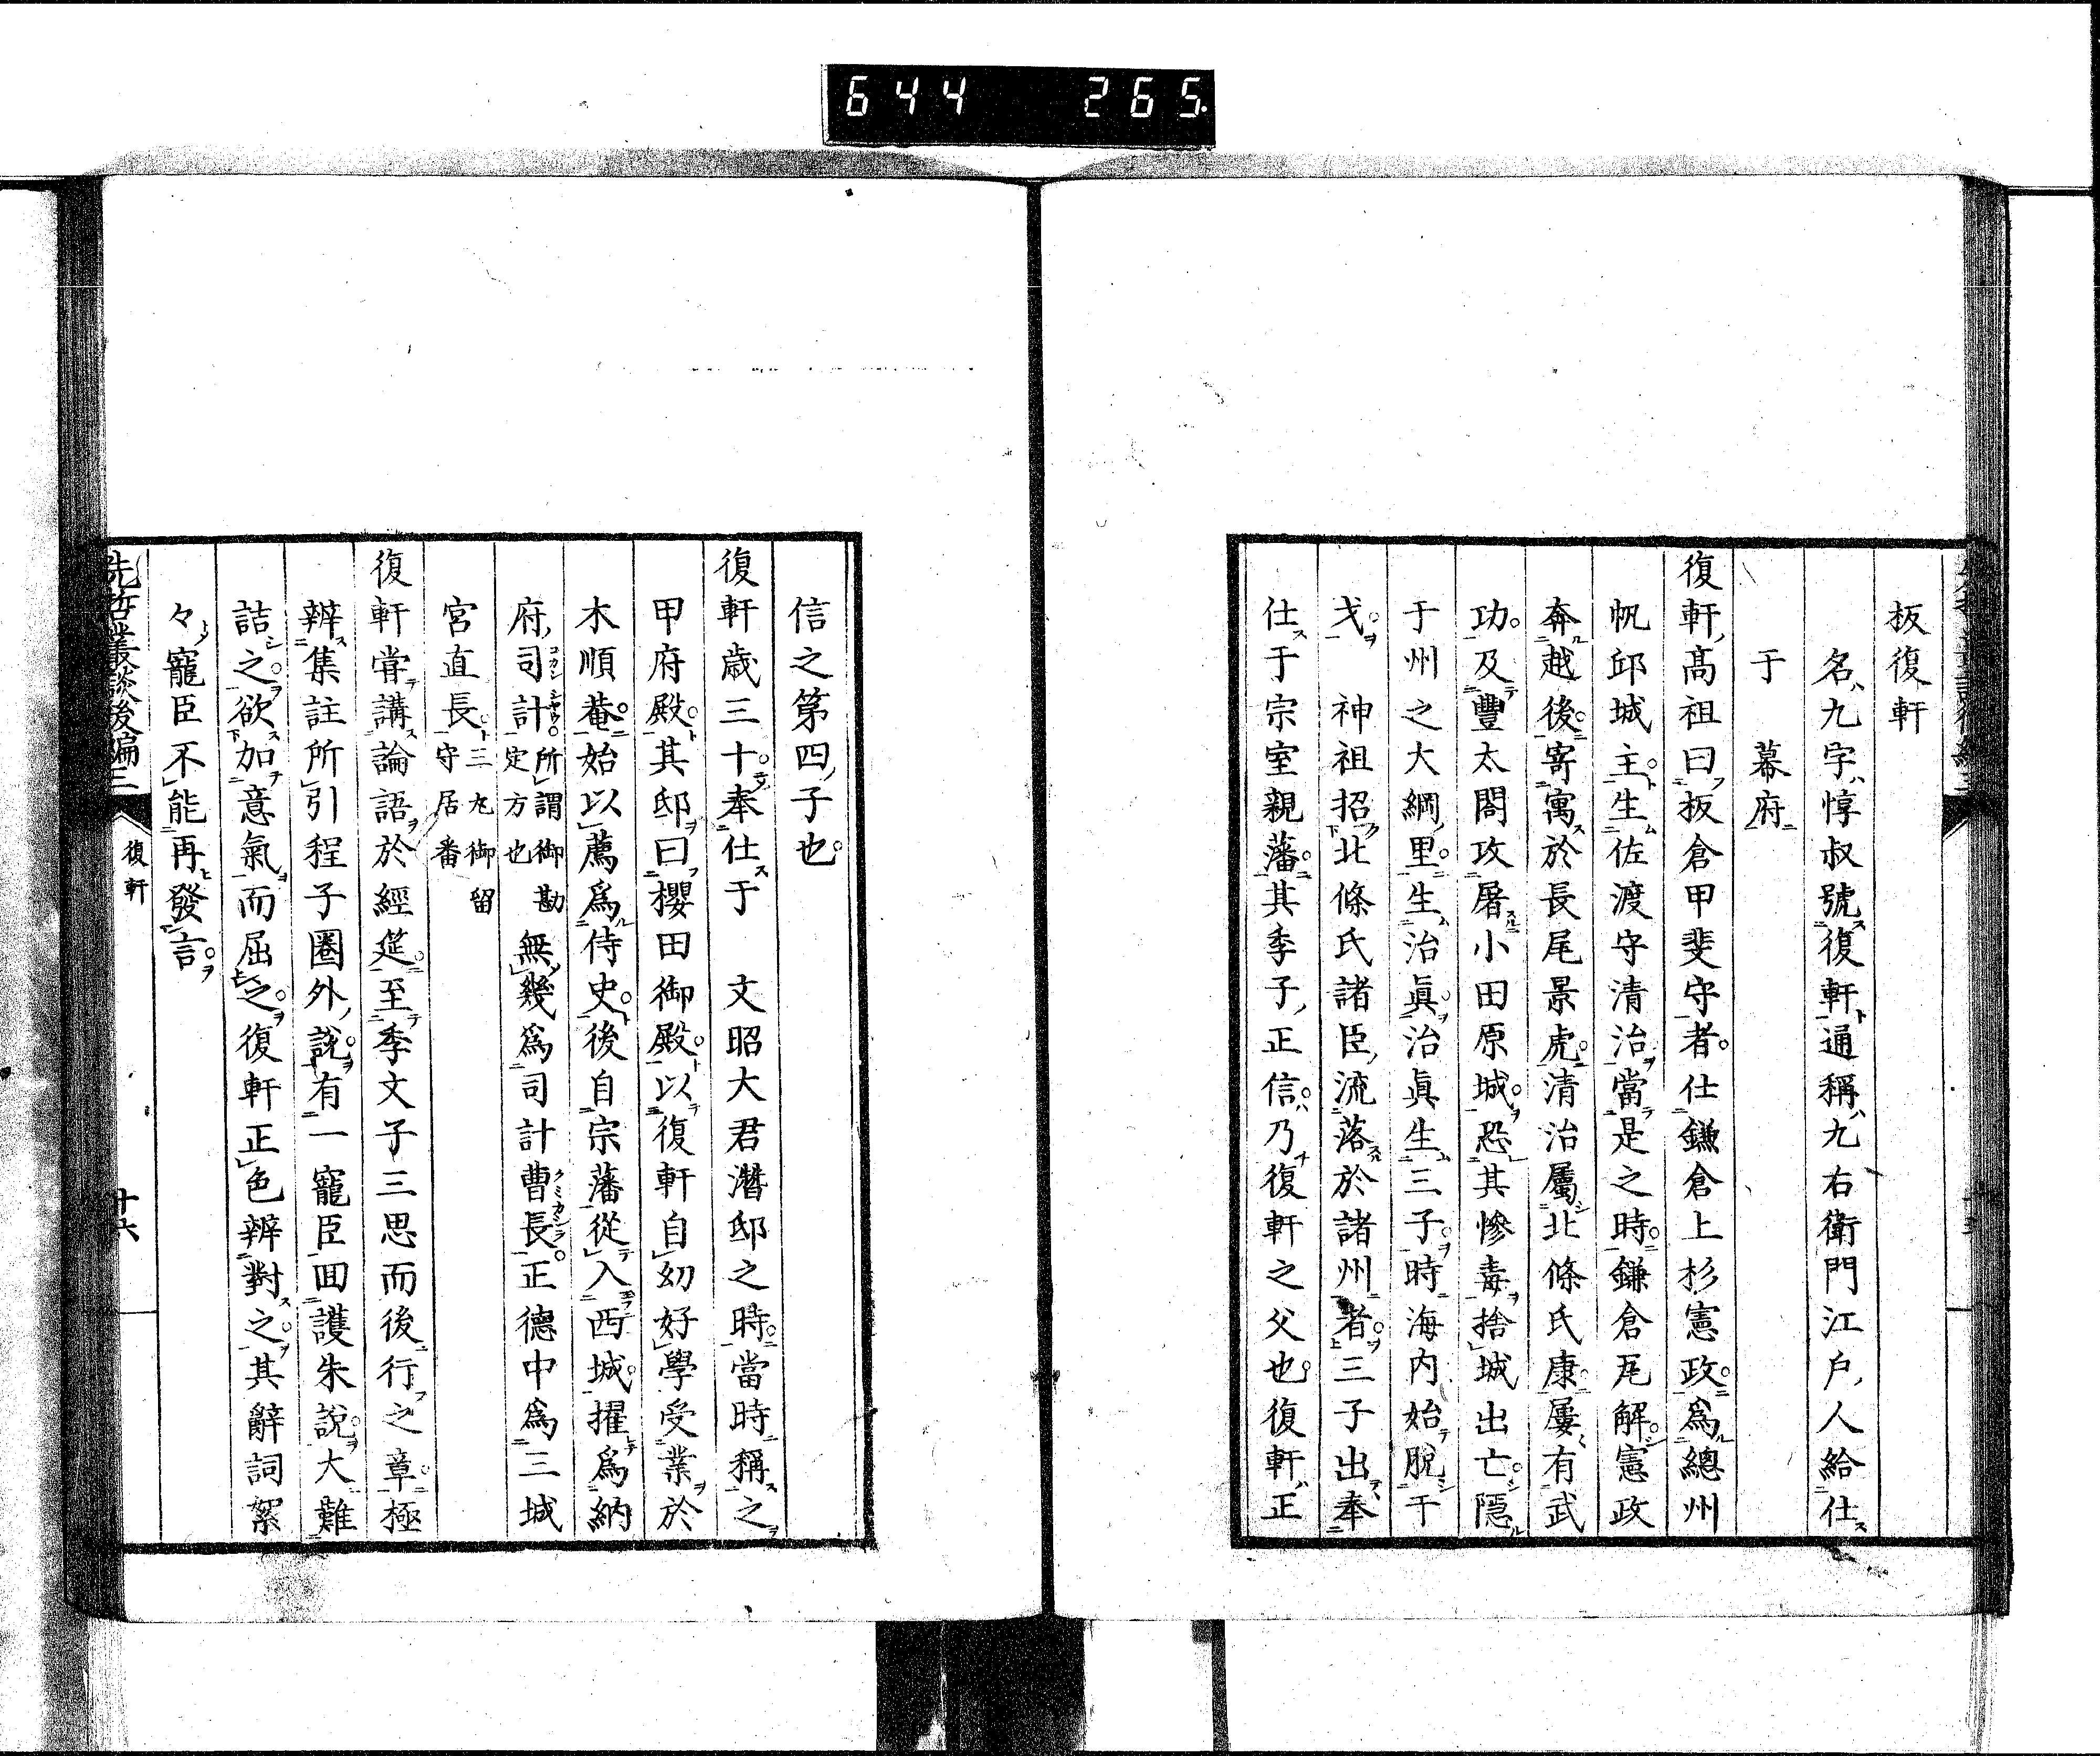 644 265
板復軒
名九字惇叔號復軒通稱九右衞門江戸人給仕
于 幕府
復軒高祖曰板倉甲斐守者仕鎌倉上杉憲政爲總州
帆邱城主生佐渡守清治當是之時鎌倉瓦解憲政
奔越後寄寓於長尾景虎清治屬北條氏康屢有武
功及豐太閤攻屠小田原城恐其慘毒捨城出亡隱
于州之大綱里生治眞治眞生三子時海内始脫干
戈 神祖招北條氏諸臣流落於諸州者三子出奉
仕于宗室親藩其季子正信乃復軒之父也復軒正
信之第四子也
復軒歳三十奉仕于 文昭大君潛邸之時當時稱之
甲府殿其邸曰櫻田御殿以復軒自幼好學受業於
木順菴始以薦爲侍史後自宗藩從入西城擢爲納
府司計所謂御勘定方也無幾爲司計曹長正德中爲三城
宮直長三丸御留守居番
復軒甞講論語於經筵至季文子三思而後行之章極
辨集註所引程子圈外說有一寵臣回護朱說大難
詰之欲加意氣而屈之復軒正色辨對之其辭詞絮
々寵臣不能再發言
先哲叢談後編三
復軒
十六